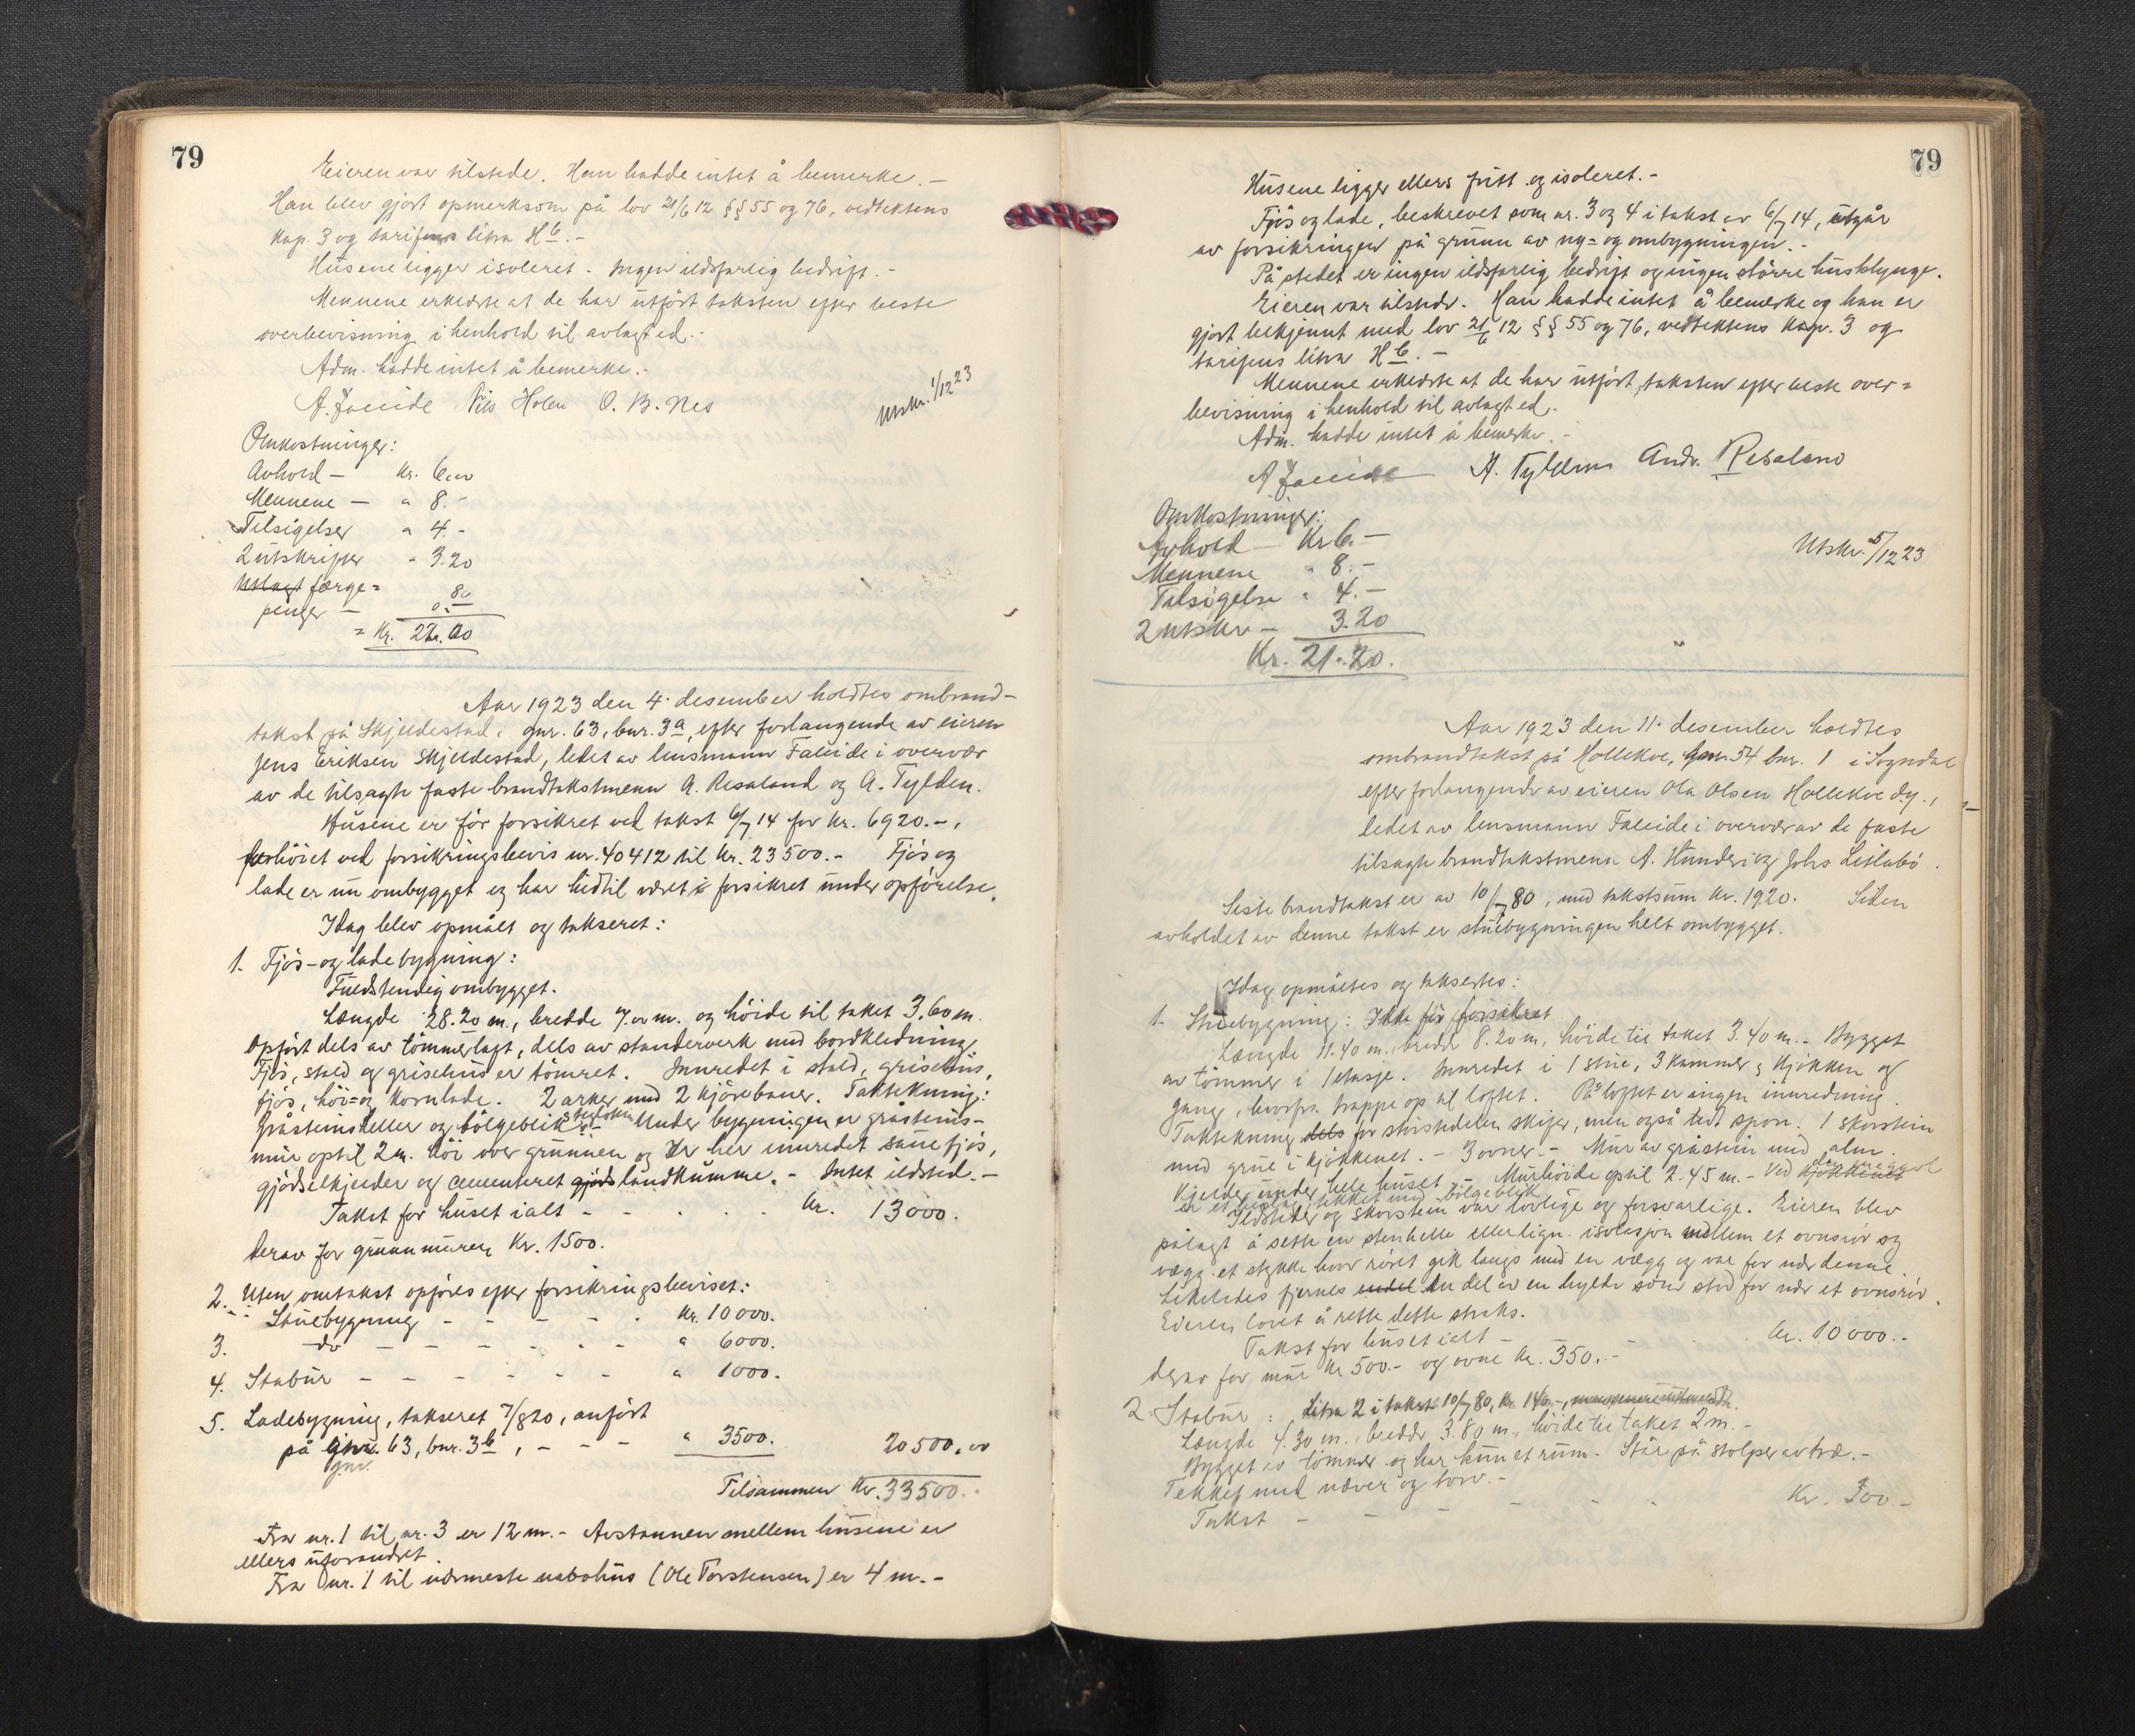 79
Eieren var tilstede. Han hadde intet å bemerke. –
Han blev gjort opmerksom på lov 21/6 12 §§ 55 og 76, vedtektens
kap. 3 og tarifens litra H 6. –
Husene ligger isoleret. Ingen ildsfarlig bedrift. –
Mennene erklærte at de har utført taksten efter beste
overbevisning i henhold til avlagt ed. –
Adm. hadde intet å bemerke. –
A. Faleide Nils Holen O. B. Nes
Utskr. 1/12 23
Omkostninger:
Avhold – Kr. 6.00
Mennene – " 8. –
Tilsigelser " 4. –
2 utskrifter " 3.20
Utlagt færge=
penger – 0.80
= Kr. 22.00
Aar 1923 den 4. desember holdtes ombrand-
takst på Skjeldestad, gnr. 63, bnr. 3a, efter forlangende av eieren
Jens Eriksen Skjeldestad, ledet av lensmann Faleide i overvær
av de tilsagte faste brandtakstmenn A. Resaland og A. Tylden.
Husene er før forsikret ved takst 6/7 14 for kr. 6920. –,
forhöiet ved forsikringsbevis nr. 40412 til kr. 23500. – Fjös og
lade er nu ombygget og har hidtil været i forsikret under opförelse.
Idag blev opmålt og taksert:
1. Fjös- og ladebygning:
Fuldstendig ombygget.
Længde 28.20 m., bredde 7.00 m. og höide til taket 3.60 m.
Opfört dels av tömmerlagt, dels av standerverk med bordkledning.
Fjös, stald og grisehus er tömret. Innredet i stald, grisehus,
fjös, höi= og kornlade. 2 arker med 2 kjörebruer. Taktekning:
gråsteinsheller og bölgeblik. – Under bygningen er gråsteins-
mur optil 2 m. höi over grunnen og er her innredet sauefjös,
gjödselkjelder og cementeret gjöds landkumme. – Intet ildsted. –
Takst for huset ialt – – – – – kr. 13000.
derav for grunnmuren Kr. 1500.
2. Uten omtakst opføres efter forsikringsbeviset:
Stuebygning – – – – – Kr. 10000.
3. do – – – – – – " 6000.
4. Stabur – – – – – – " 1000.
5. Ladebygning, takseret 7/8 20, anfört
på gnr. 63, bnr. 3b, – – – " 3500. 20500.00
gnr.
Tilsammen Kr. 33500. –
Fra nr. 1 til nr. 3 er 12 m. – Avstannen mellem husene er
ellers uforandret.
Fra nr. 1 til nærmeste nabohus (Ole Torstensen) er 4 m. –
79
Husene ligger ellers fritt og isoleret. –
Fjös og lade, beskrevet som nr. 3 og 4 i takst av 6/7 14, utgår
av forsikringen på grunn av ny= og ombygningen. –
På stedet er ingen ildsfarlig bedrift og ingen større husklynge.
Eieren var tilstede. Han hadde intet å bemerke og han er
gjort bekjennt med lov 21/6 12 §§ 55 og 76, vedtektens kap. 3 og
tarifens litra H 6. –
Mennene erklærte at de har utfört taksten efter beste over=
bevisning i henhold til avlagt ed. –
Adm. hadde intet å bemerke. –
A Faleide A. Tylden Andr. Resaland
Omkostninger:
Avhold – Kr 6. –
Mennene " 8. –
Tilsigelse " 4. –
2 utskr – 3.20
Kr. 21.20.
Utskr. 5/12 23
Aar 1923 den 11. desember holdtes
ombrandtakst på Hollekve, gnr. 54 bnr. 1 i Sogndal
efter forlangende av eieren Ola Olsen Hollekve d.y.,
ledet av lensmann Faleide i overvær av de faste
tilsagte brandtakstmenn A. Hunderi og Johs Lillabö.
Siste brandtakst er av 10/7 80, med takstsum kr. 1920. Siden
avholdet av denne takst er stuebygningen helt ombygget.
Idag opmåltes og taksertes:
1. Stuebygning: Ikke för forsikret
Længde 11.40 m., bredde 8.20 m, höide til taket 3.40 m. – Bygget
av tömmer i 1 etasje. Innredet i 1 stue, 3 kammer, kjökken og
gang, hvorfra trappe op til loftet. På loftet er ingen innredning.
Taktekning dels for störstedelen skifer, men også tent spon. 1 skorstein
med grue i kjökkenet. – 3 ovner. – Mur av gråstein med
kjelder under hele huset. – Murhöide optil 2.45 m. – Ved kjökkenet
er et tekket med bölgeblik.
Ildsteder og skorstein var lovlige og forsvarlige. Eieren blev
pålagt å sette en stenhelle eller lign. isolasjon mellem et ovnsrör og
vægg et stykke hvor röret gik langs med en vægg og var for nær denne.
Likeledes fjernes endel en del av en hylde som stod for nær et ovnsrör.
Eieren lovet å rette dette straks.
Takst for huset ialt – – – kr. 10000. –
derav for mur kr 500. – og ovne kr. 350. –
2. Stabur: Litra 2 i takst 10/7 80, kr
Længde 4.30 m., bredde 3.80 m., höide til taket 2 m. –
Bygget av tömmer og har kun et rum. Står på stolper av træ. –
Tekket med næver og torv. –
Takst – – – – Kr. 300 –